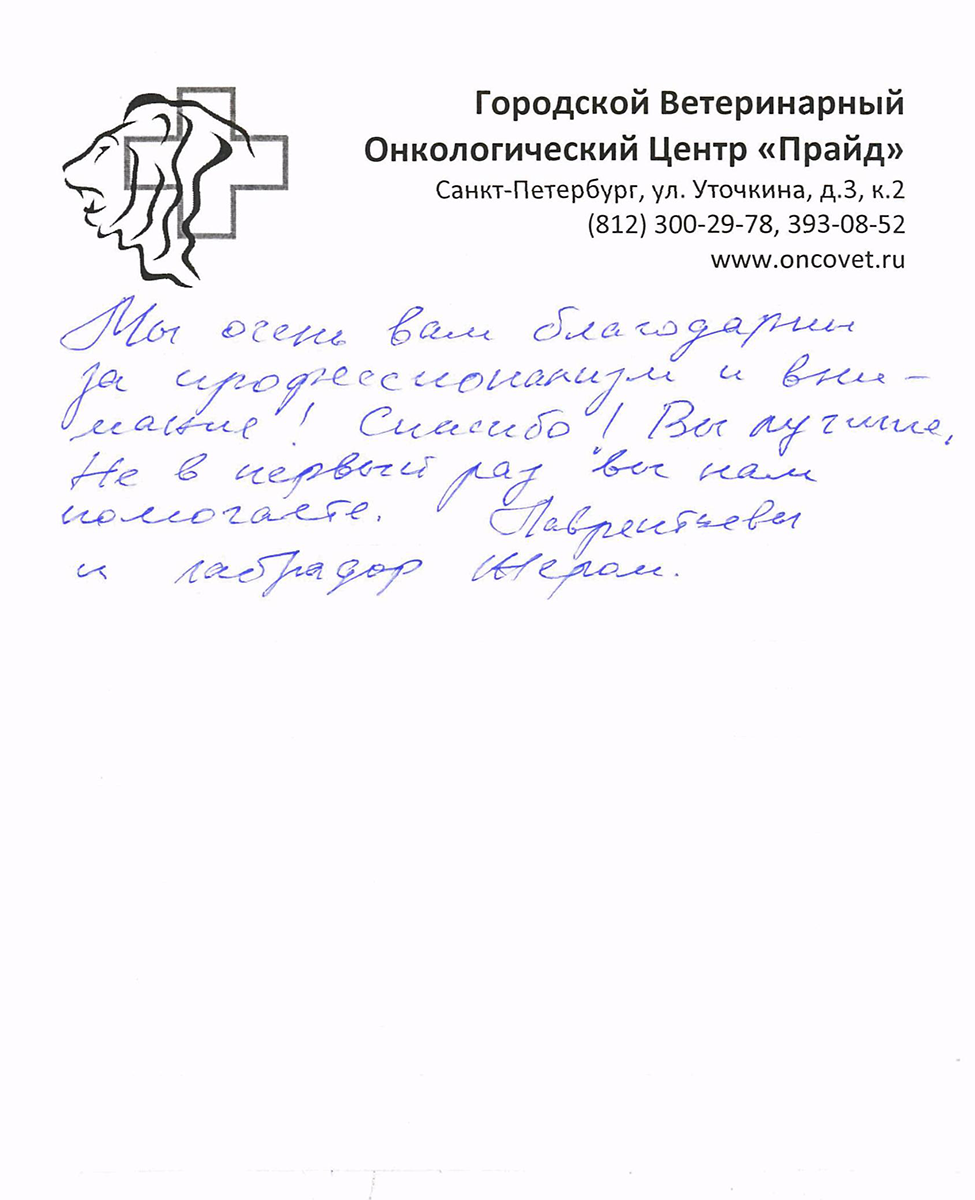 Городской Ветеринарный
Онкологический Центр «Прайд»
Санкт-Петербург, ул. Уточкина, д.3, к.2
(812) 300-29-78, 393-08-52
www.oncovet.ru
Мы очень вам благодарны
за профессионализм и вни-
мание! Спасибо! Вы лучшие,
Не в первый раз вы нам
помогаете. Лаврентьевы
и лабрадор